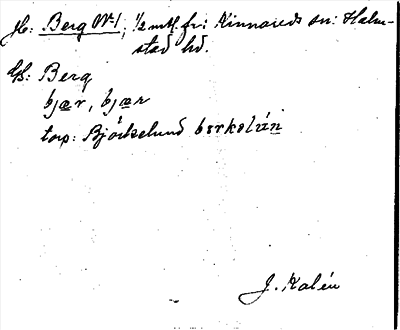 Jb: Berg No 1; 1/2 mtl. fr: Kinnareds sn: Halm-
stad hd.
Us. Berg
bjær, bjær
torp: Björkelund berkelún
J. Kalén